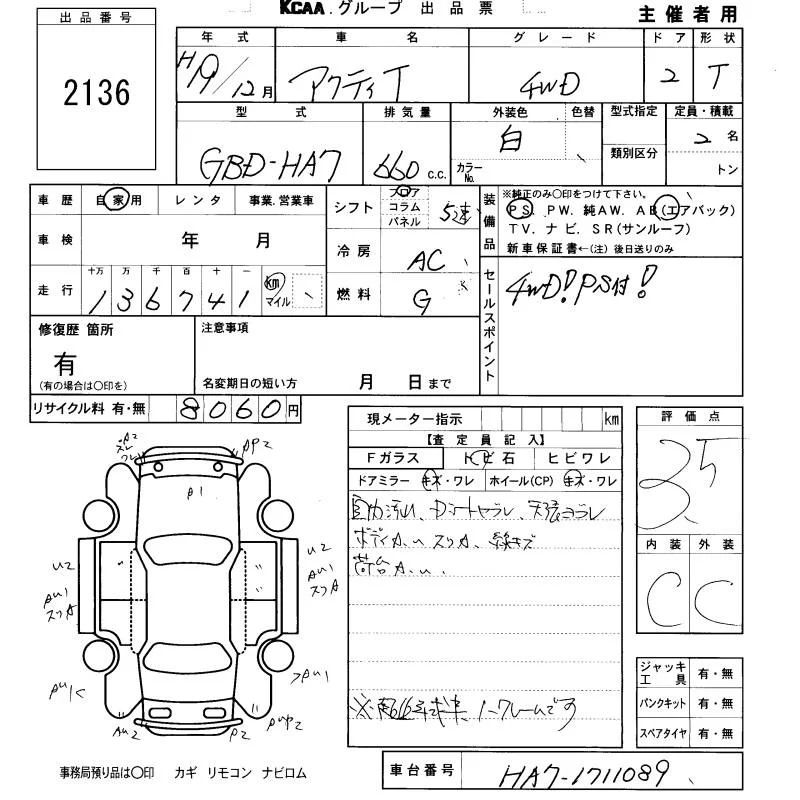 KCAA.グループ 出品票
主催者用
出品番号
2136
年式 車名 グレード ドア 形状
H19/12月 アクティT 4WD 2 T
型式 排気量 外装色 色替 型式指定 定員・積載
GBD-HA7 660 c.c. 白 カラーNo. 類別区分 2名 トン
車歴 自家用 レンタ 事業.営業車
車検 年 月
走行 十万 万 千 百 十 一
136741 km マイル
シフト フロア コラム パネル 5速
冷房 AC
燃料 G
装備品
※純正のみ〇印をつけて下さい。
PS. PW. 純AW. AB(エアバック)
TV. ナビ. SR(サンルーフ)
新車保証書←(注) 後日送りのみ
セールスポイント
4WD! PS付!
修復歴 箇所
有
(有の場合は〇印を)
注意事項
名変期日の短い方 月 日まで
リサイクル料 有・無 8060円
現メーター指示 km
【査定員記入】
Fガラス トビ石 ヒビワレ
ドアミラー キズ・ワレ ホイール(CP) キズ・ワレ
ボディA.u スリA. 線キズ
荷台A.u.
評価点
3.5
内装 外装
C C
ジャッキ工具 有・無
パンクキット 有・無
スペアタイヤ 有・無
P2
P1
U2 U2
AU1 AU1
スリA スリA
AU2 P2
事務局預り品は〇印 カギ リモコン ナビロム
車台番号 HA7-1711089